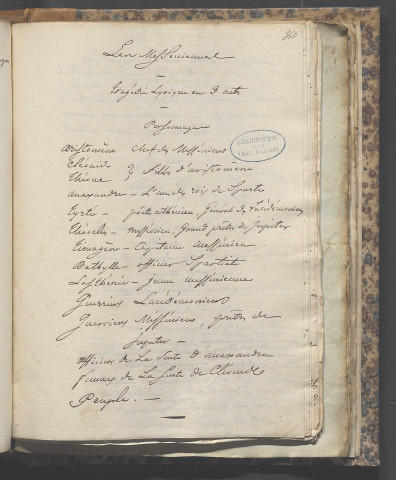 350
Les Messéniennes
Tragédie Lyrique en 3 acts
Personnages
BIBLIOTHÈQUE
DE LA
VILLE
aristomène chef des Messéniens
} filles d'aristomène
anaxandre - L'un des rois de Sparte
Tyrtée - poète athénien, Général des Lacédémoniens
Théoclès - messénien, Grand prêtre de Jupiter
- Capitaine messénien
Bathylle - officier Spartiate
Lasthénie - jeune messénienne
Guerriers Lacédémoniens
Guerriers Messéniens, prêtres de
Jupiter -
officiers de La Suite d'anaxandre
femmes de La Suite de
Peuple. -